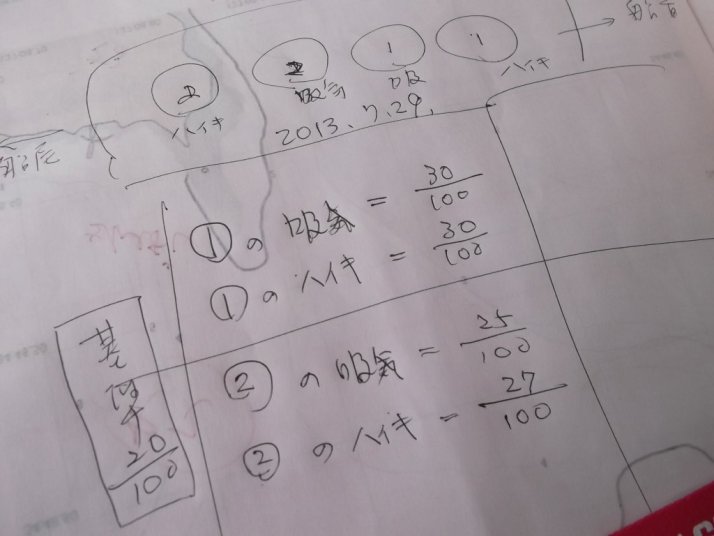 ② ② ① ①
ハイキ 吸気 吸 ハイキ
2013.7.29.
①の吸気 = 30/100
①のハイキ = 30/100
②の吸気 = 25/100
②のハイキ = 27/100
基準
20/100